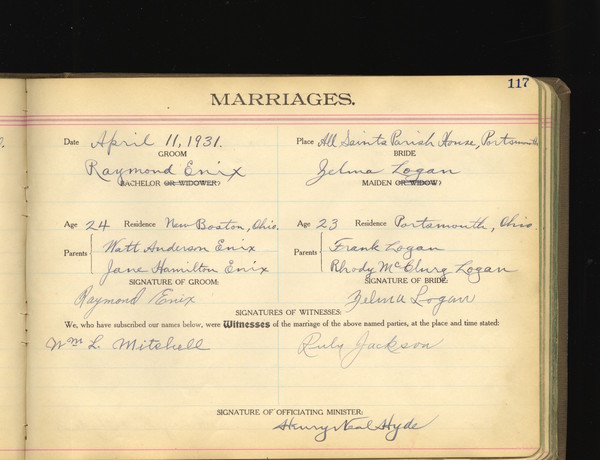 117
MARRIAGES.
Date April 11, 1931. Place All Saints Parish House, Portsmouth
GROOM BRIDE
Raymond Enix Zelma Logan
BACHELOR OR WIDOWER? MAIDEN OR WIDOW?
Age 24 Residence New Boston, Ohio. Age 23 Residence Portsmouth, Ohio.
Parents Watt Anderson Enix Parents Frank Logan
Jane Hamilton Enix Rhody McClurg Logan
SIGNATURE OF GROOM: SIGNATURE OF BRIDE:
Raymond Enix Zelma Logan
SIGNATURES OF WITNESSES:
We, who have subscribed our names below, were Witnesses of the marriage of the above named parties, at the place and time stated:
Wm L. Mitchell Ruby Jackson
SIGNATURE OF OFFICIATING MINISTER:
Henry Neal Hyde